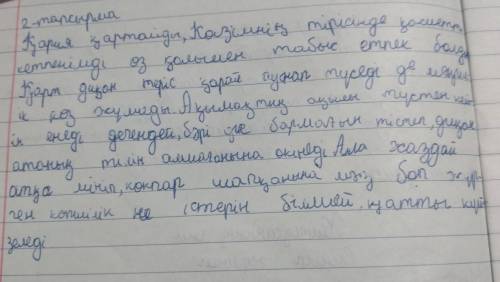 2-тапсырма
Қария қартайды, Көзімнің тірісінде қасиетті
кетпенімді өз қолымен табыс етпек болды
Қарт диқан теріс қарай аунап түседі де мәңгі
ік көз жұмады. Ақымақтың ақылы түстен кей
ін енеді дегендей, бәрі де бармағын тістеп, диқан
атаның тілін алмағанына өкінеді Ала жаздай
атқа мініп, көкпар шапқанына мәз боп жүр
ген көпшілік не істерін білмей қатты күй
зеледі